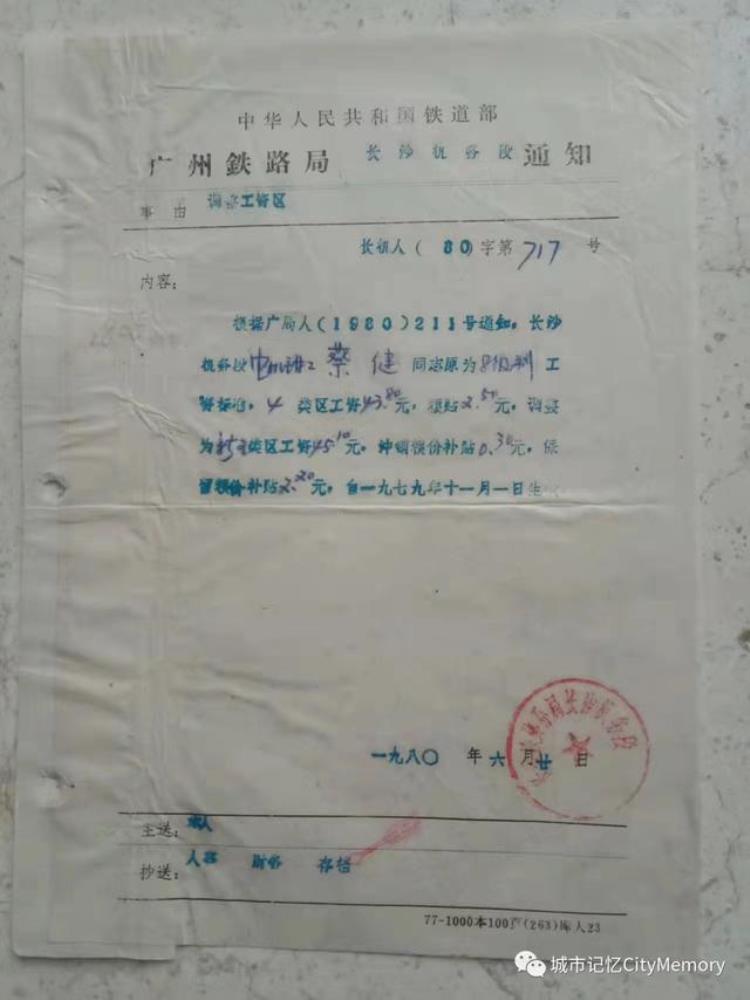 中华人民共和国铁道部
广州鉄路局 长沙机务段 通知
事由 调整工资区
长机人(80)字第717号
内容：
根据广局人(1980)211号通知，长沙
机务段 蔡健同志原为8级制工
资标准，4类区工资43.80元，粮贴2.50元，调整
为新5类区工资45.10元，冲销粮价补贴0.30元，保
留粮价补贴2.20元，自一九七九年十一月一日生
一九八〇年六月廿日
主送：本人
抄送：人客 财务 存档
77-1000本100产(263)库人23
城市记忆CityMemory